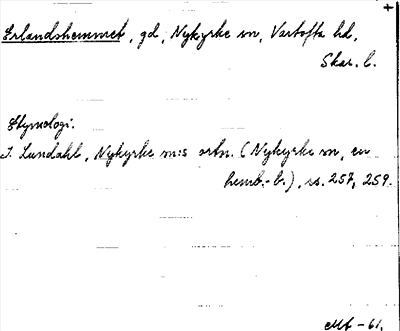 +
Erlandshemmet, gd, Nykyrke sn, Vartofta hd,
Skar. l.
Etymologi.
I. Lundahl, Nykyrke sn:s ortn. (Nykyrke sn, en
hemb.-b.), ss. 257, 259.
-61.